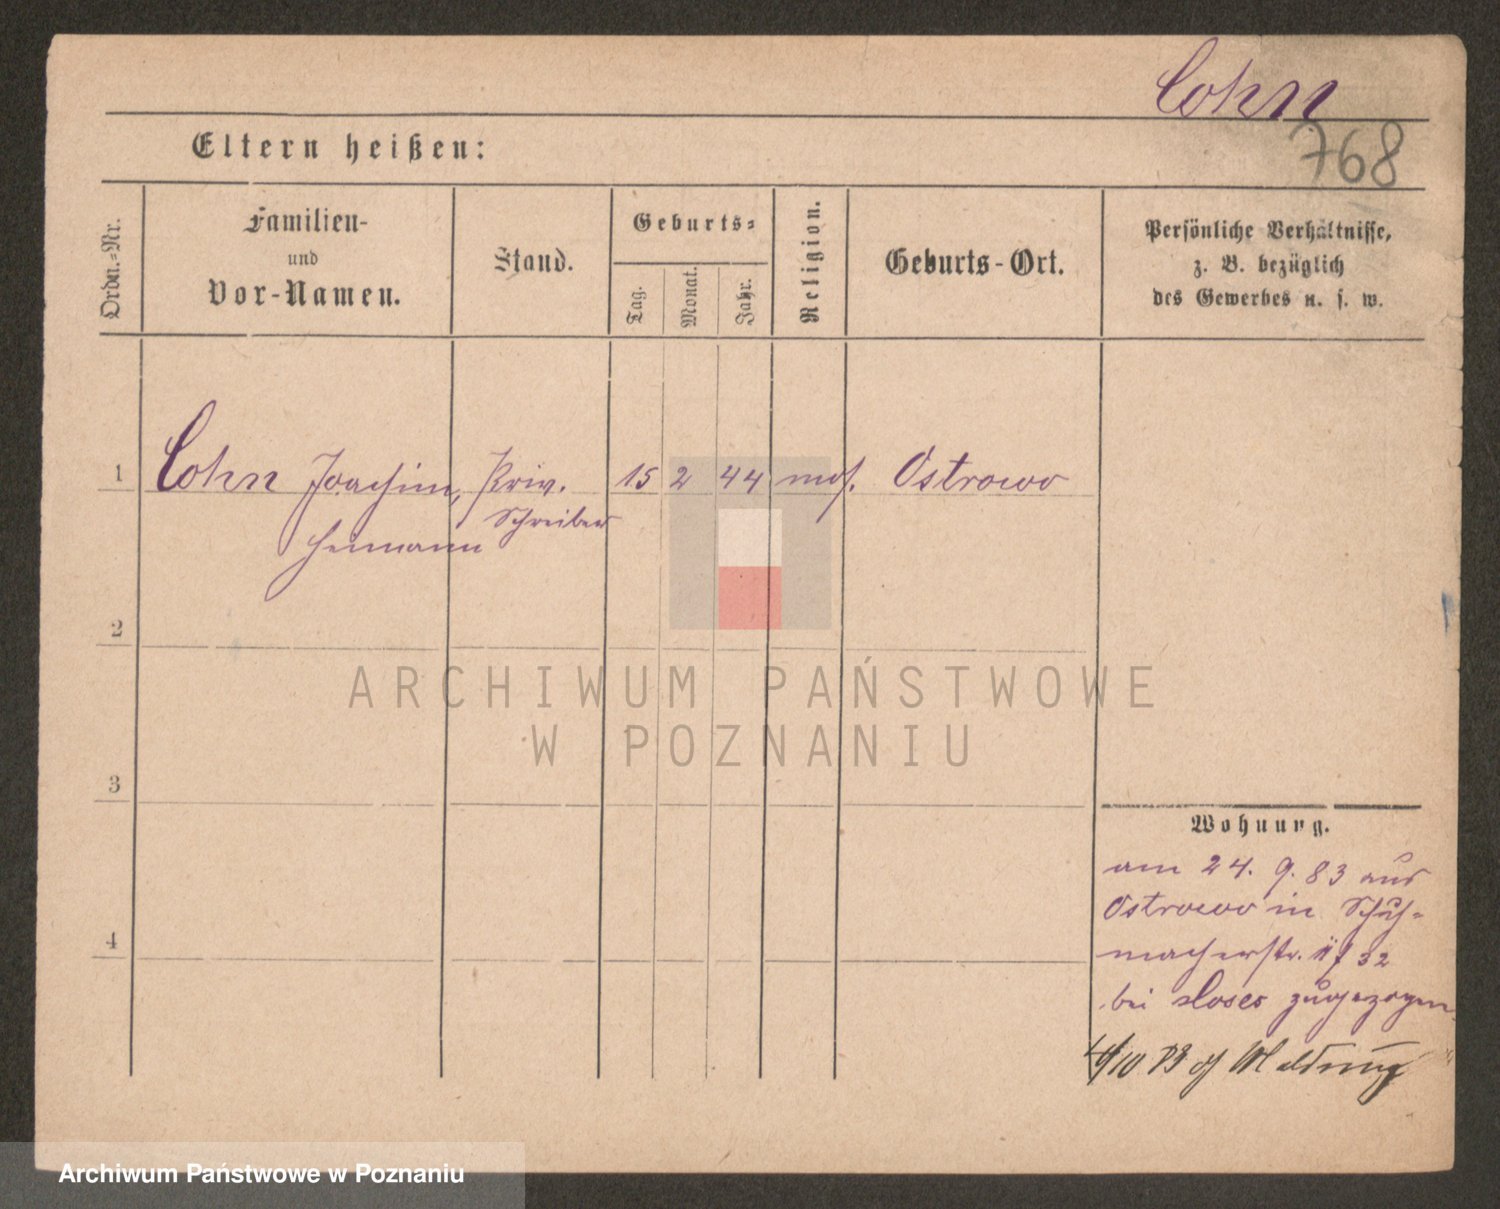 Cohn
768
Eltern heißen:
Ordn.=Nr.
Familien-
und
Vor-Namen.
Stand.
Geburts=
Tag.
Monat.
Jahr.
Religion.
Geburts-Ort.
Persönliche Verhältnisse,
z. B. bezüglich
des Gewerbes u. s. w.
1 Cohn Joachim, Priv. 15 2 44 mos. Ostrowo
Schreiber
Heimann
2
ARCHIWUM PAŃSTWOWE
W POZNANIU
3
Wohnung.
am 24. 9. 83 aus
Ostrowo in Schuh-
4
macherstr. 32
bei Moses zugezogen
/10 Meldung
Archiwum Państwowe w Poznaniu